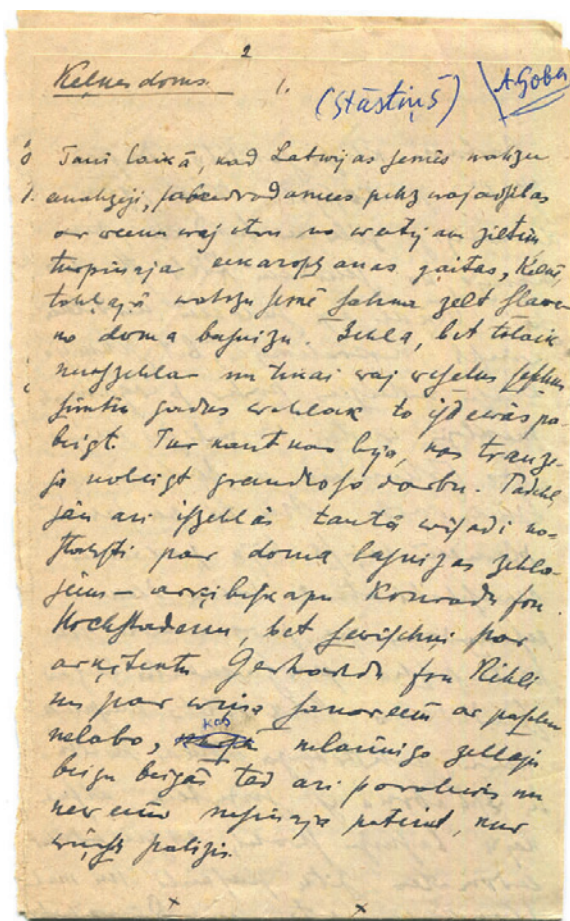 2
Kelnes doms. 1. (Stāstiņš) A. Goba
Tani laikā, kad Latwijas semēs wahzu
ar weenu waj otru no weetejam ziltim
turpinaja eekaroschanas gaitas, Kelnē,
wahzu semē sahka zelt slawe-
no doma basnizu. Zehla, bet tolaik
neusزehla un tikai waj weselus
simtu gadus wehlak to isdewās pa-
beigt. Tur kaut kas bija, kas trauze-
ja nobeigt grandioso darbu. Tadehļ
jau ari iszehlās tautā wisadi no-
stahsti par doma basnizas zehle-
jeem – arķibiskapu Konradu fon
Hochstadenu, bet sewischķi par
arķitektu Gerhardu fon Rihli
un par wiņa sakareem ar paschu
nelabo, kas nelaimigo zehleju
beigu beigās tad ari parahwis un
neweens nesinaja pateikt, kur
wiņsch palizis.